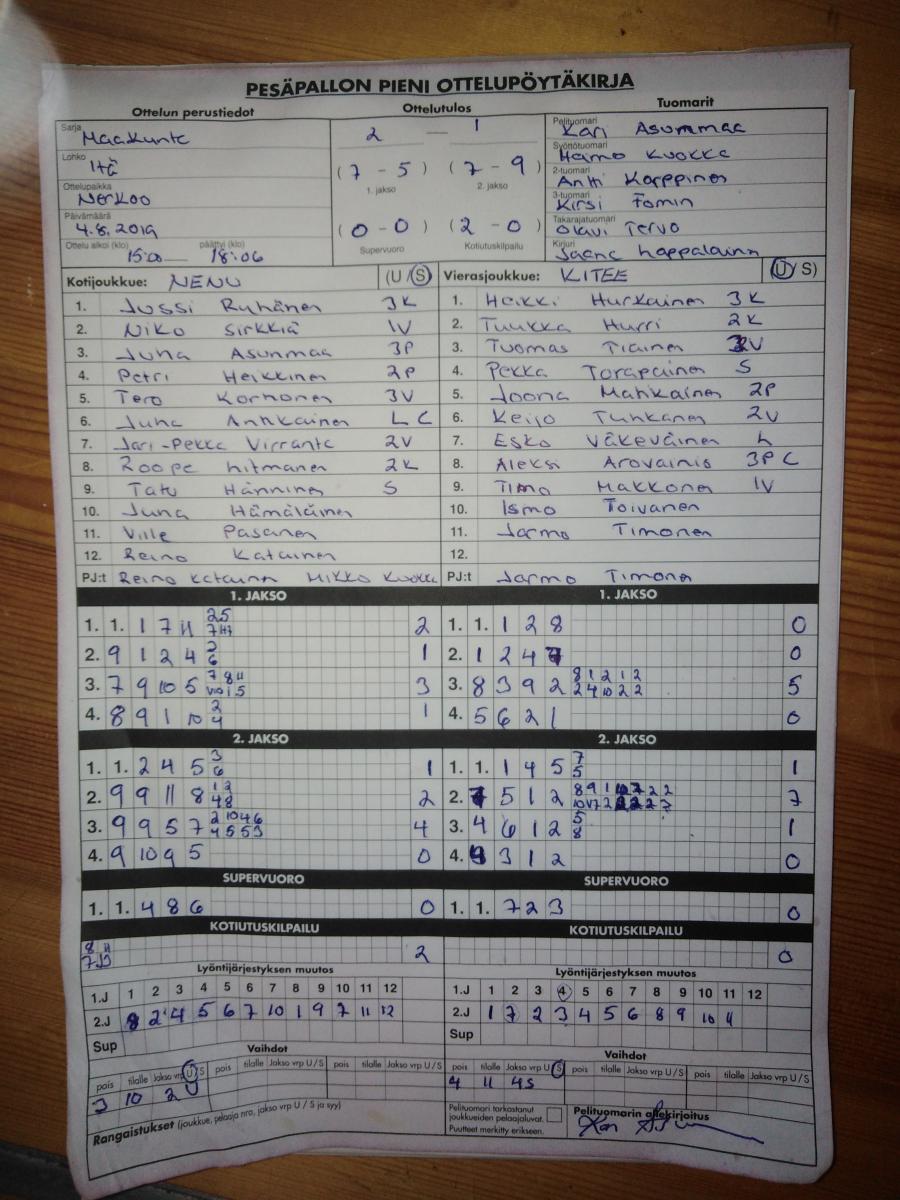 PESÄPALLON PIENI OTTELUPÖYTÄKIRJA
Ottelun perustiedot Ottelutulos Tuomarit
Sarja Maakunta
Lohko Itä
Ottelupaikka Nerkoo
Päivämäärä 4.8.2019
Ottelu alkoi (klo) 15:00 päättyi (klo) 18:06
2 — 1
(7 - 5) (7 - 9)
1. jakso 2. jakso
(0 - 0) (2 - 0)
Supervuoro Kotiutuskilpailu
Pelituomari Kari Asummaa
Syöttötuomari Kuokka
2-tuomari Antti Karppinen
3-tuomari Kirsi Fomin
Takarajatuomari Olavi Tervo
Kirjuri
Kotijoukkue: NENU (U / S)
1. Jussi Ruhänen 3K
2. Niko Sirkkiä 1V
3. Juha Asunmaa 3P
4. Petri Heikkinen 2P
5. Tero Korhonen 3V
6. Juha Anhkainen L C
7. Jari-Pekka Virranta 2V
8. Roope Litmanen 2K
9. Tatu Hänninen S
10. Juha Hämäläinen
11. Ville Pasanen
12. Reino Katainen
PJ:t Reino Katainn Mikko Kuokka
Vierasjoukkue: KITEE (U / S)
1. Heikki Hurkainen 3K
2. Tuukka Hurri 2K
3. Tuomas Tiainen 3V
4. Pekka Torapainen S
5. Joona Mahkainen 2P
6. Keijo Tuhkanen 2V
7. Esko Väkeväinen L
8. Aleksi Arovainio 3P C
9. Timo Makkonen 1V
10. Ismo Toivanen
11. Jarmo Timonen
12.
PJ:t Jarmo Timonen
1. JAKSO 1. JAKSO
1. 1. 1 7 11 2
1. 1. 1 2 8 0
2. 9 1 2 4 1
2. 1 2 4 7 0
3. 7 9 10 5 3
3. 8 3 9 2 5
4. 8 9 1 10 2 4 1
4. 5 6 2 1 0
2. JAKSO 2. JAKSO
1. 1. 2 4 5 3 6 1
1. 1. 1 4 5 7 5 1
2. 9 9 11 8 2
2. 7 5 1 2 7
3. 9 9 5 7 2 10 4 6 4 5 5 3 4
3. 4 6 1 2 5 8 1
4. 9 10 9 5 0
4. 9 3 1 2 0
SUPERVUORO SUPERVUORO
1. 1. 4 8 6 0
1. 1. 7 2 3 0
KOTIUTUSKILPAILU KOTIUTUSKILPAILU
2 0
Lyöntijärjestyksen muutos Lyöntijärjestyksen muutos
1.J 1 2 3 4 5 6 7 8 9 10 11 12
2.J 8 2 4 5 6 7 10 1 9 7 11 12
Sup
1.J 1 2 3 4 5 6 7 8 9 10 11 12
2.J 1 7 2 3 4 5 6 8 9 10 11
Sup
Vaihdot Vaihdot
pois tilalle Jakso vrp U / S pois tilalle Jakso vrp U / S pois tilalle Jakso vrp U / S
3 10 2 U
pois tilalle Jakso vrp U / S pois tilalle Jakso vrp U / S pois tilalle Jakso vrp U / S
4 11 4S
Rangaistukset (joukkue, pelaaja nro, jakso vrp U / S ja syy)
Pelituomari tarkastanut
joukkueiden pelaajaluvat.
Puutteet merkitty erikseen.
Pelituomarin allekirjoitus